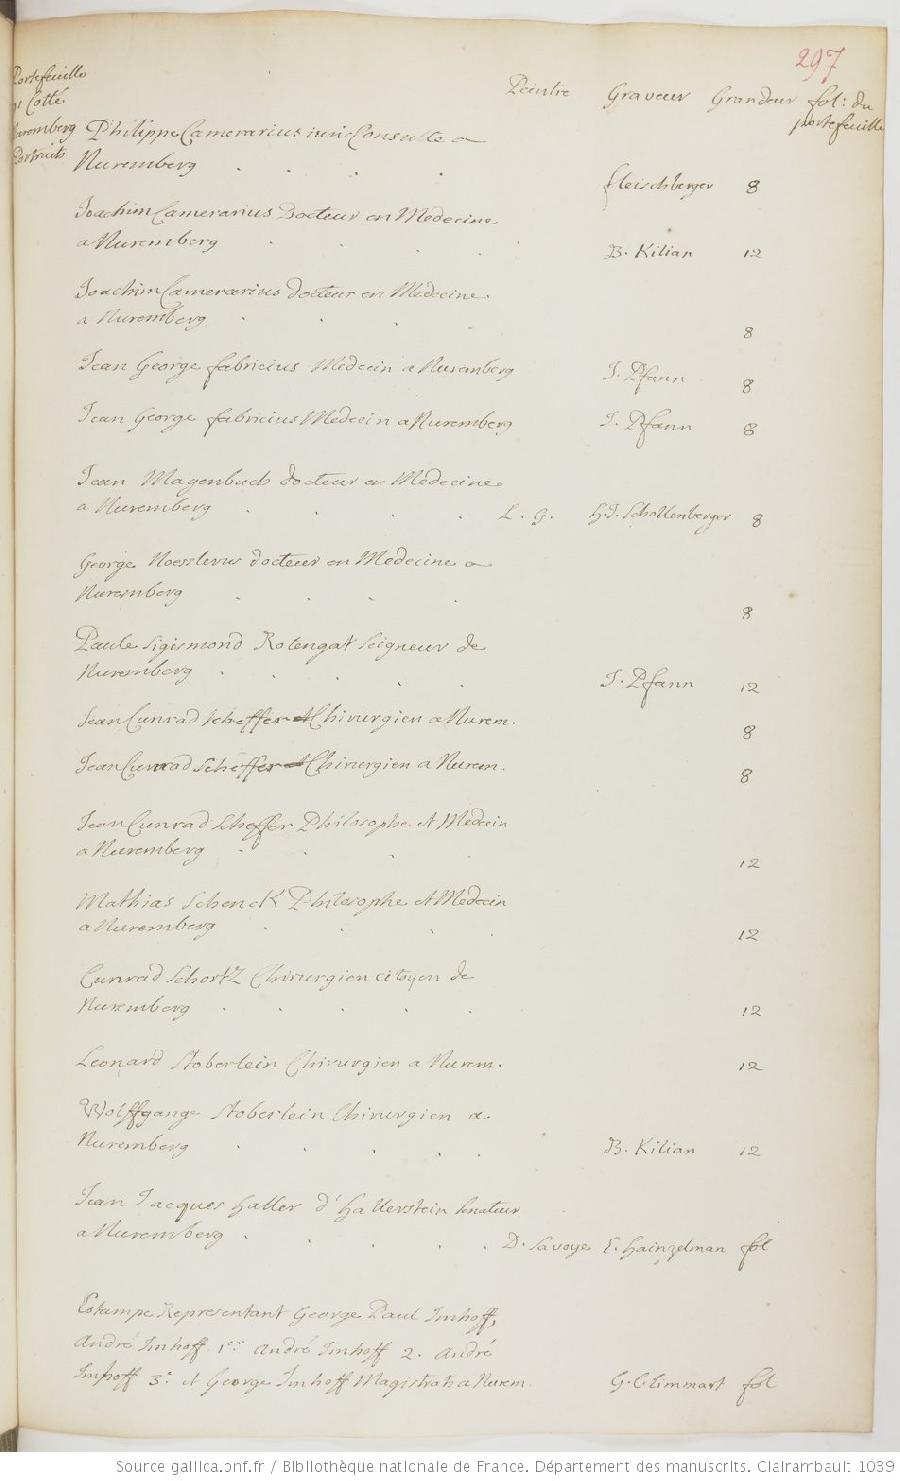 297
Portefeuille
Cotté
Nuremberg
Portraits
Peintre Graveur Grandeur fol: du
portefeuille
Philippe Camerarius iuri Consulte a
Nuremberg . . . . fleischberger 8
Joachim Camerarius Docteur en Medecine
a Nuremberg . . . B. Kilian 12
Joachim Camerarius docteur en Medecine
a Nuremberg . . . . 8
Jean George fabricius Medecin a Nuremberg J. Pfann 8
Jean George fabricius Medecin a Nuremberg J. Pfann 8
Jean Magenbuch docteur en Medecine
a Nuremberg . . . . L. G. H.J. Schollenberger 8
George Noesslerus docteur en Medecine a
Nuremberg . . . . 8
Paule Sigismond Rotengat Seigneur de
Nuremberg . . . . . J. Pfann 12
Jean Cunrad scheffer et Chirurgien a Nurem. 8
Jean Cunrad Scheffer et Chirurgien a Nurem. 8
Jean Cunrad Sheffer Philosophe et Medecin
a Nuremberg . . . . 12
Mathias Schenck Philosophe et Medecin
a Nuremberg . . . . 12
Cunrad Schortz Chirurgien citoyen de
Nuremberg . . . . . 12
Leonard Stoberlein Chirurgien a Nurem. 12
Wolffgange Stoberlein Chirurgien a
Nuremberg . . . . . B. Kilian 12
Jean Jacques haller d'hallerstein senateur
a Nuremberg . . . . . D. Savoye E. hainzelman fol
Estampe Representant George Paul Imhoff,
André Imhoff 1er André Imhoff 2. André
Imhoff 3e et George Imhoff Magistrats a Nurem. G. C. Eimmart fol
Source gallica.bnf.fr / Bibliothèque nationale de France. Département des manuscrits. Clairambault 1039